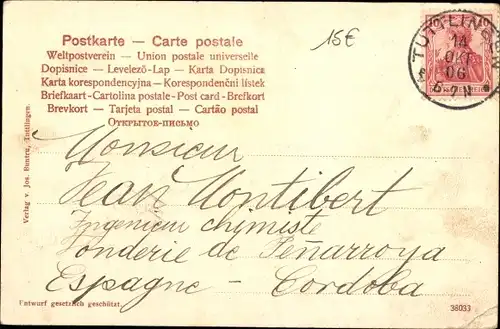 Postkarte — Carte postale
15€
Weltpostverein — Union postale universelle
Dopisnice — Levelező-Lap — Karta Dopisnica
Karta korespondencyjna — Korespondenční lístek
Briefkaart - Cartolina postale - Post card - Brefkort
Brevkort — Tarjeta postal — Cartão postal
ОТКРЫТОЕ-ПИСЬМО
TUTTLINGEN
14
OKT
06
6-7 N
10 10
Monsieur
Jean Montibert
Ingenieur chimiste
Fonderie de Peñarroya
Espagne — Cordoba
Verlag v. Jos. Buntru, Tuttlingen.
Entwurf gesetzlich geschützt.
38033